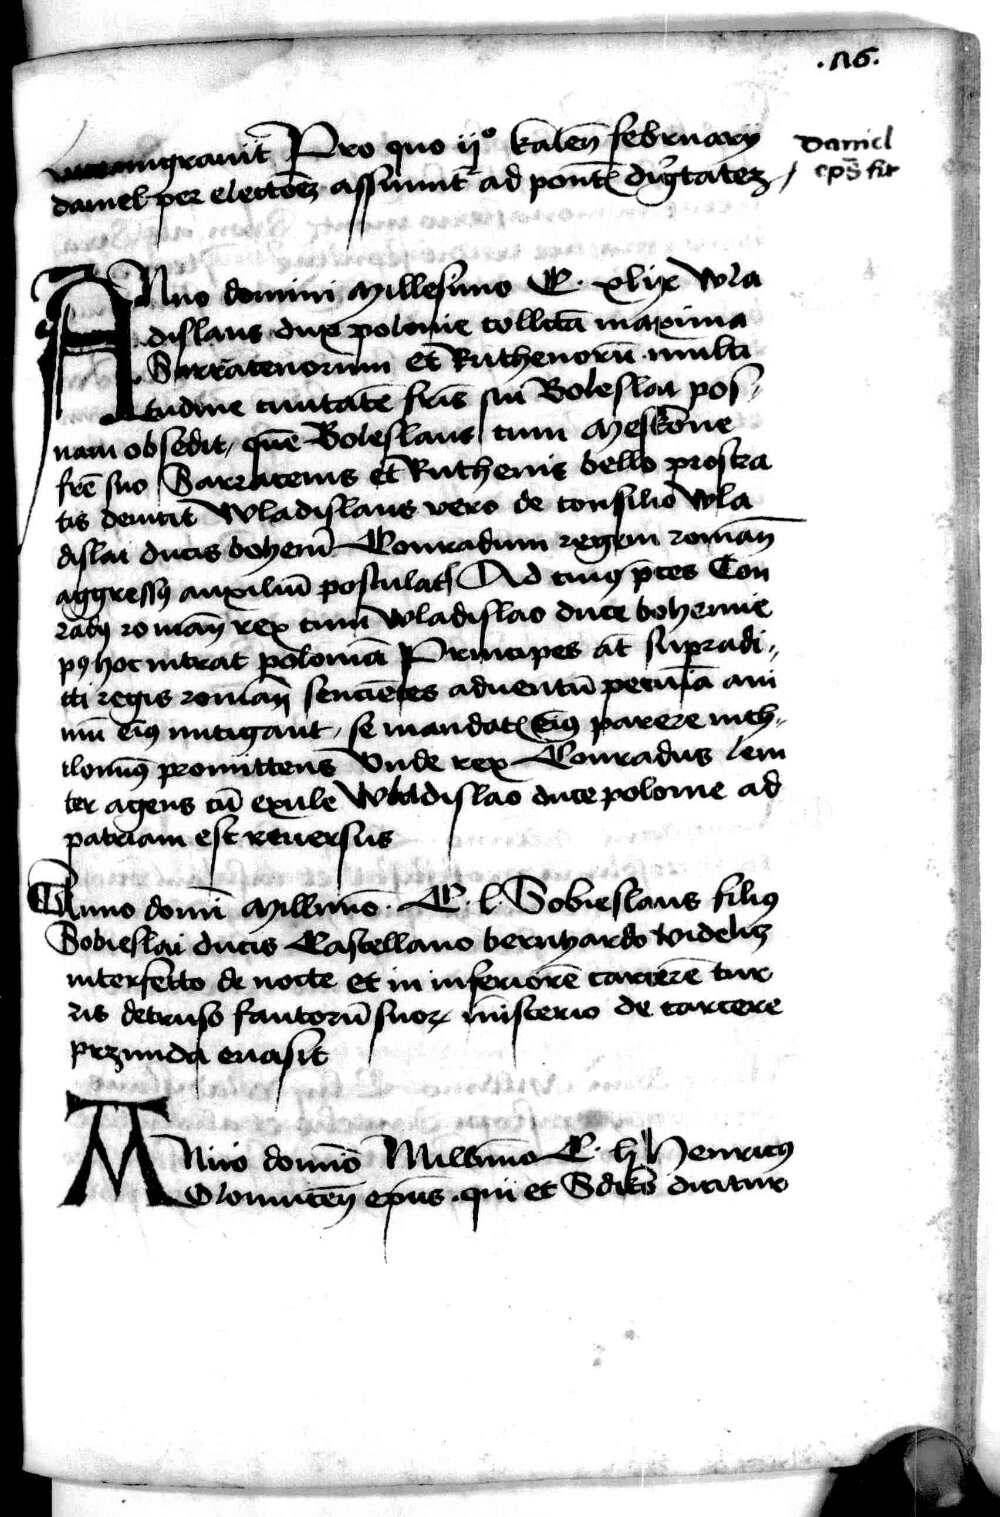 .126.
Daniel
eps fit
migravit Pro quo ij° kalen february
daniel per electoes assumit ad pont digtatez
Anno domini Millesimo C. xlix Wla
dislaus dux polonie collecta maxima
Sarracenorum et Ruthenoru multi
tudine civitate fris sui Boleslai pos
nam obsedit, que Boleslaus cum Meskone
fre suo Sarracenis et Ruthenis bello prostra
tis devicit Wladislaus vero de consilio Wla
dislai ducis bohemi Conradum regem roman
aggress9 auxiliu postulat Ad cui9 pces Con
rad9 roman rex cum Wladislao duce bohemie
p9 hoc intrat polonia Principes at supradi
cti regis roman sencientes adventu pecunia ani
mu ei9 mitigant, se mandat ei9 parere nich
ilomin9 promittens Unde rex Conradus leni
ter agens cu exule Wladislao duce polonie ad
patriam est reversus
Anno domi Millimo C. l. Sobieslaus fili9
Sobieslai ducis Castellano bernhardo videlicz
interfecto de nocte et in inferiore carcere tur
ris detruso fautoru suor misterio de carcere
przimda evasit
Anno domio Millimo C. lj Henric9
Olomucen epus. qui et Sdiko dicitur